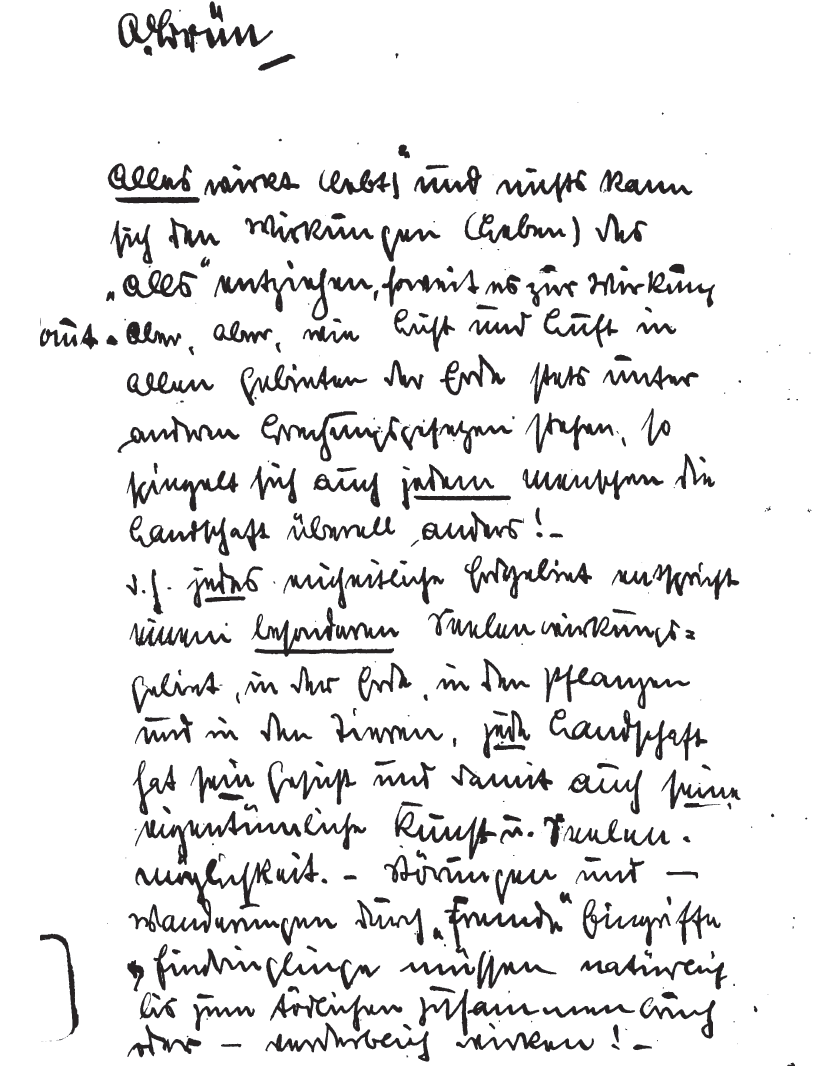 A. Brün
Alles wirkt (lebt) und nichts kann
sich den Wirkungen (Leben) des
„Alls“ entziehen, soweit es zur Wirkung
Aber, aber, wie Luft und Luft in
allen Gebieten der Erde stets unter
anderen Brechungsgesetzen stehen, so
spiegelt sich auch jedem Menschen die
Landschaft überall anders! –
d. h. jedes einheitliche Erdgebiet entspricht
einem besonderen Seelenwirkungs=
gebiet, in der Erde, in den Pflanzen
und in den Tieren, jede Landschaft
hat sein Gesicht und damit auch seine
eigentümliche Kunst u. Seelen-
möglichkeit. – Störungen und –
Wanderungen durch „Fremde“ Eingriffe
Eindringlinge müssen natürlich
bis zum tödlichen Zusammenbruch
oder – verderblich wirken! –